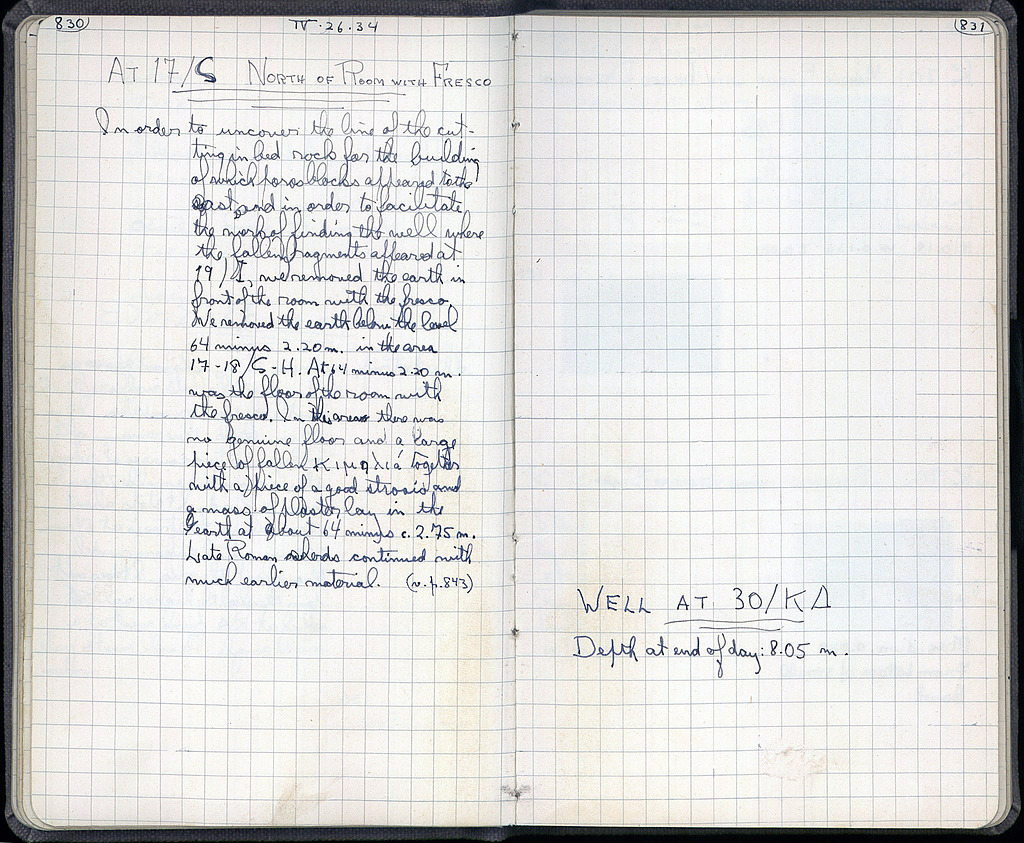 830
IV.26.34
AT 17/S NORTH OF ROOM WITH FRESCO
In order to uncover the line of the cut-
ting in bed rock for the building
of which poros blocks appeared to the
east, and in order to facilitate
the work of finding the well where
the fallen fragments appeared at
19/I, we removed the earth in
front of the room with the fresco.
We removed the earth below the level
64 minus 2.20 m. in the area
17-18/S-H. At 64 minus 2.20 m.
was the floor of the room with
the fresco. In the area there was
no genuine floor and a large
piece of fallen κιμηλιά together
with a piece of a good strosis and
a mass of plaster lay in the
earth at about 64 minus c. 2.75 m.
Late Roman sherds continued with
much earlier material. (v. p. 843)
831
WELL AT 30/ΚΔ
Depth at end of day: 8.05 m.